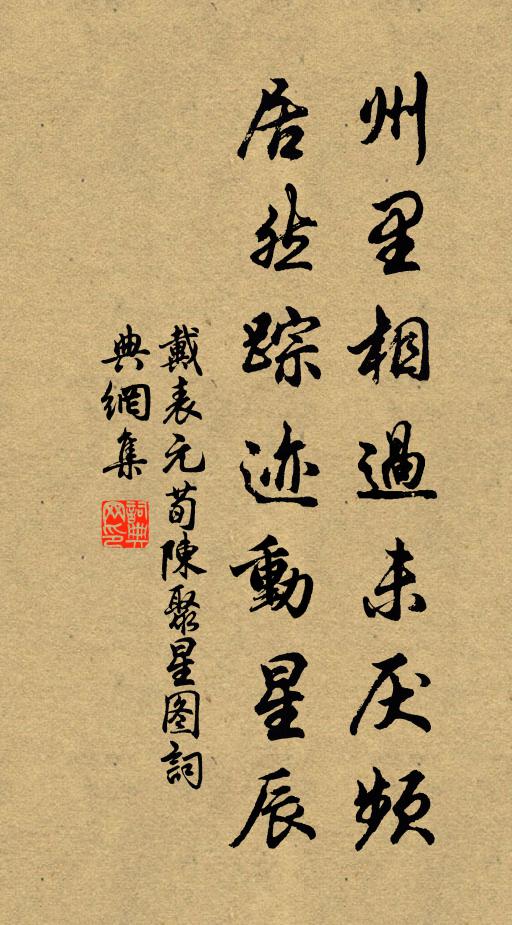 州里相過未厌頻
居然踪迹動星辰
戴表元荀陳聚星图詞
典網集
詞典
网印